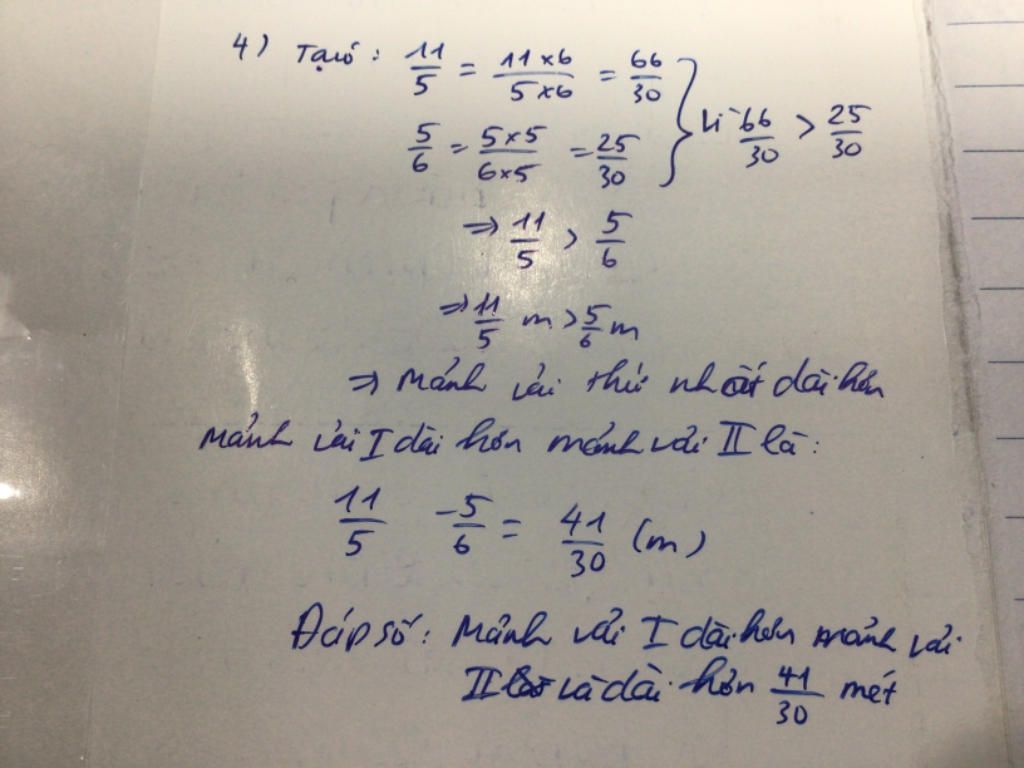 4) Ta có : 11/5 = 11×6/5×6 = 66/30 } Vì 66/30 > 25/30
5/6 = 5×5/6×5 = 25/30
⇒ 11/5 > 5/6
⇒ 11/5 m > 5/6 m
⇒ Mảnh vải thứ nhất dài hơn
Mảnh vải I dài hơn mảnh vải II là :
11/5 - 5/6 = 41/30 (m)
Đáp số : Mảnh vải I dài hơn mảnh vải
II và dài hơn 41/30 mét